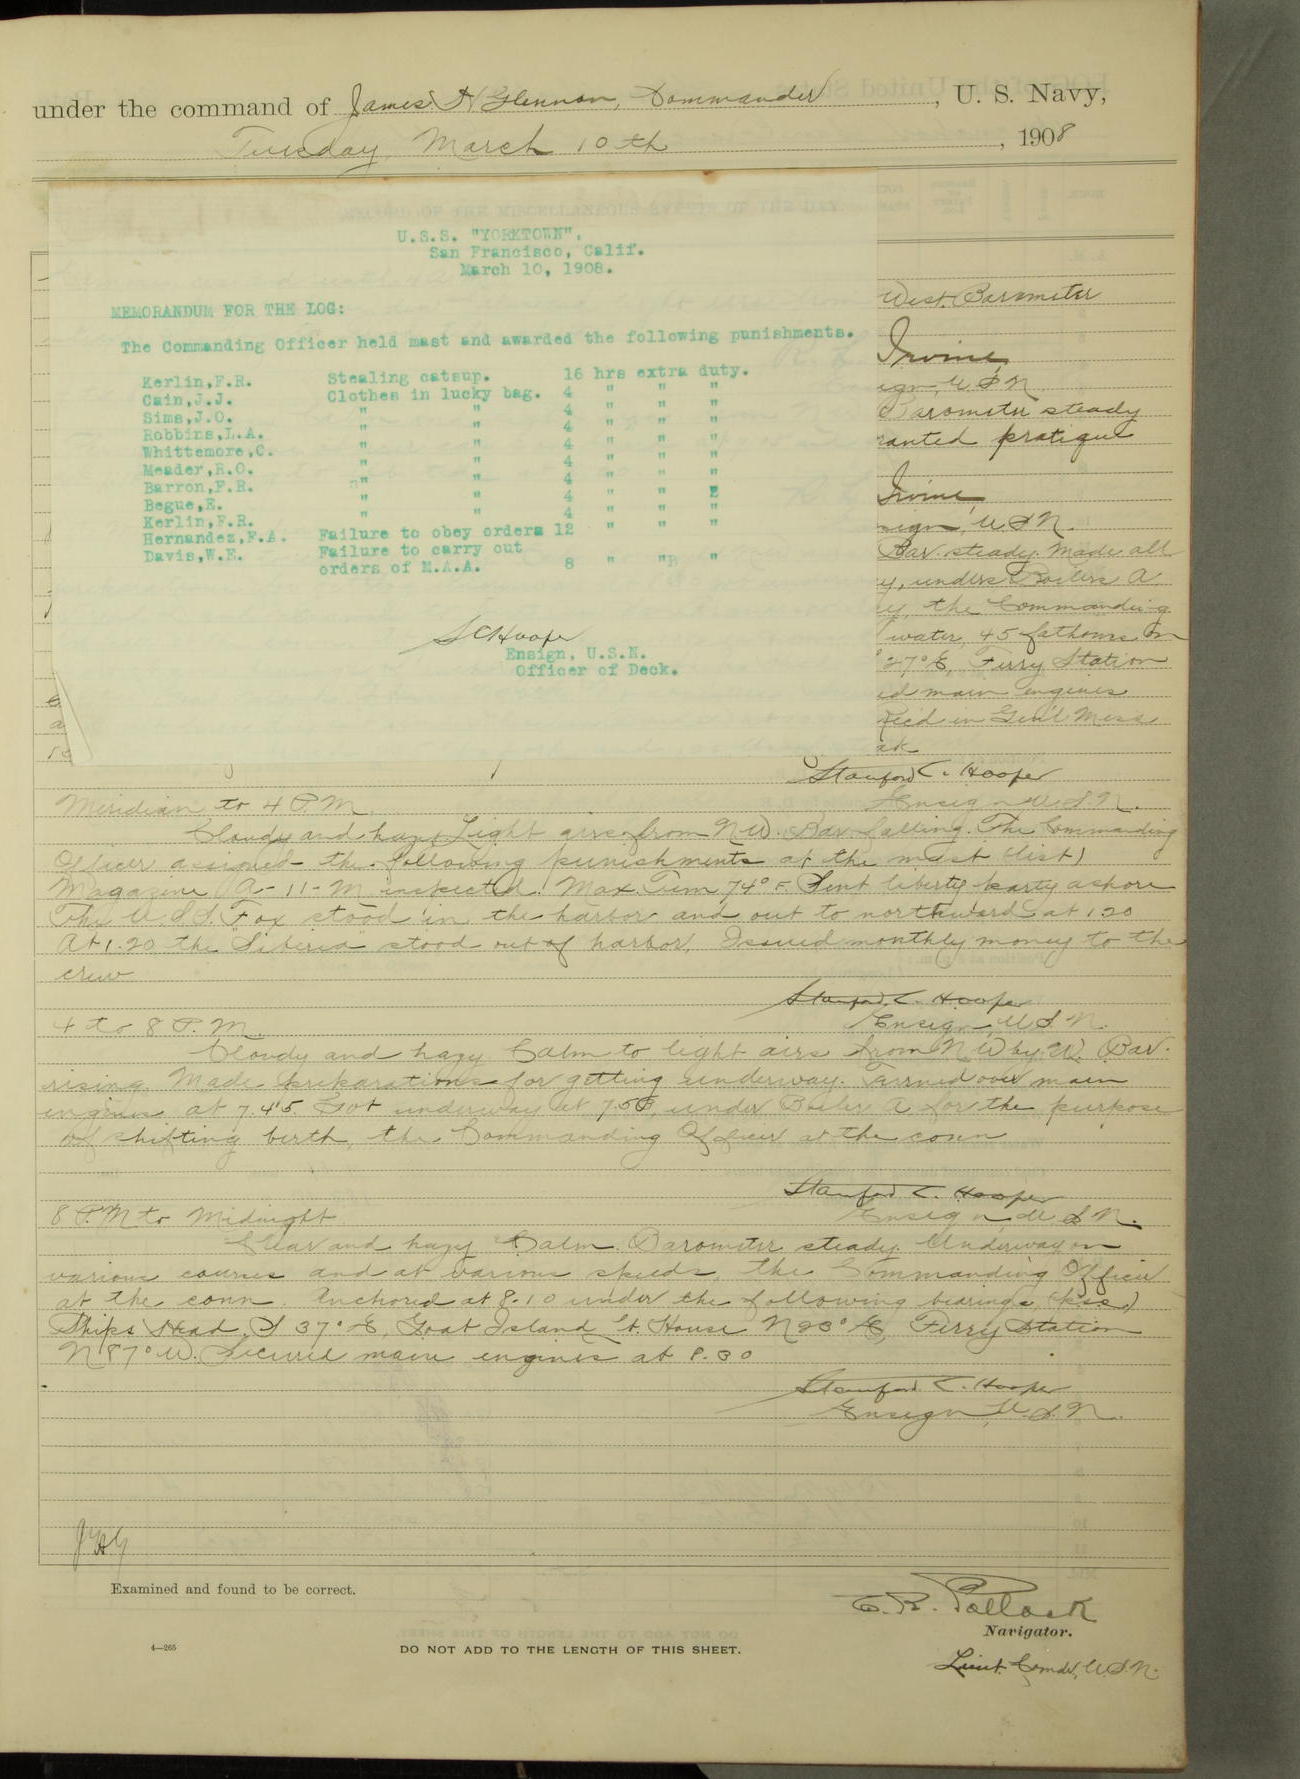 under the command of James H Glennon, Commander, U. S. Navy,
Tuesday, March 10th, 1908
U.S.S. "YORKTOWN",
San Francisco, Calif.
March 10, 1908.
MEMORANDUM FOR THE LOG:
The Commanding Officer held mast and awarded the following punishments.
Kerlin,F.R. Stealing catsup. 16 hrs extra duty.
Cain,J.J. Clothes in lucky bag. 4 " " "
Sims,J.O. " " 4 " " "
Robbins,L.A. " " 4 " " "
Whittemore,C. " " 4 " " "
Meader,R.O. " " 4 " " "
Barron,F.R. " " 4 " " "
Begue,E. " " 4 " "
Kerlin,F.R. " " 4 " " "
Hernandez,F.A. Failure to obey orders 12 " " "
Davis,W.E. Failure to carry out
orders of M.A.A. 8 " " "
S C Hooper
Ensign, U.S.N.
Officer of Deck.
West. Barometer
Irvine,
U S N
Barometer steady
pratique
Irvine,
U S N.
Bar. steady. Made all
under Boilers A
the Commanding
water, 45 fathoms on
27° E, Ferry Station
main engines
in Gen'l Mess
Stanford C. Hooper
Ensign U. S. N.
Meridian to 4 P.M.
Cloudy and hazy. Light airs from N.W. Bar. falling. The Commanding
Officer assigned the following punishments at the mast (list)
Magazine A-11-M inspected. Max. Tem 74° F. Sent liberty party ashore
The U.S.S. Fox stood in the harbor and out to northward at 1.20
At 1.20 the "Siberia" stood out of harbor. Issued monthly money to the
crew
Stanford C. Hooper
Ensign, U. S. N.
4 to 8 P. M.
Cloudy and hazy. Calm to light airs from NW by W. Bar.
rising. Made preparations for getting underway. Turned over main
engines at 7.45. Got underway at under Boiler A for the purpose
of shifting birth, the Commanding Officer at the conn
Stanford C. Hooper
Ensign, U. S. N.
8 P.M to Midnight
Clear and hazy. Calm. Barometer steady. Underway on
various courses and at various speeds, the Commanding Officer
at the conn. Anchored at 8.10 under the following bearings, (psc)
S 37° E, Goat Island Lt. House N 23° E, Ferry Station
N 87° W. Secured main engines at 8.30
Stanford C. Hooper
Ensign, U. S. N.
JHG
Examined and found to be correct.
C. R. Pollock
Navigator.
4—265
DO NOT ADD TO THE LENGTH OF THIS SHEET.
Lieut. Comdr, U.S.N.